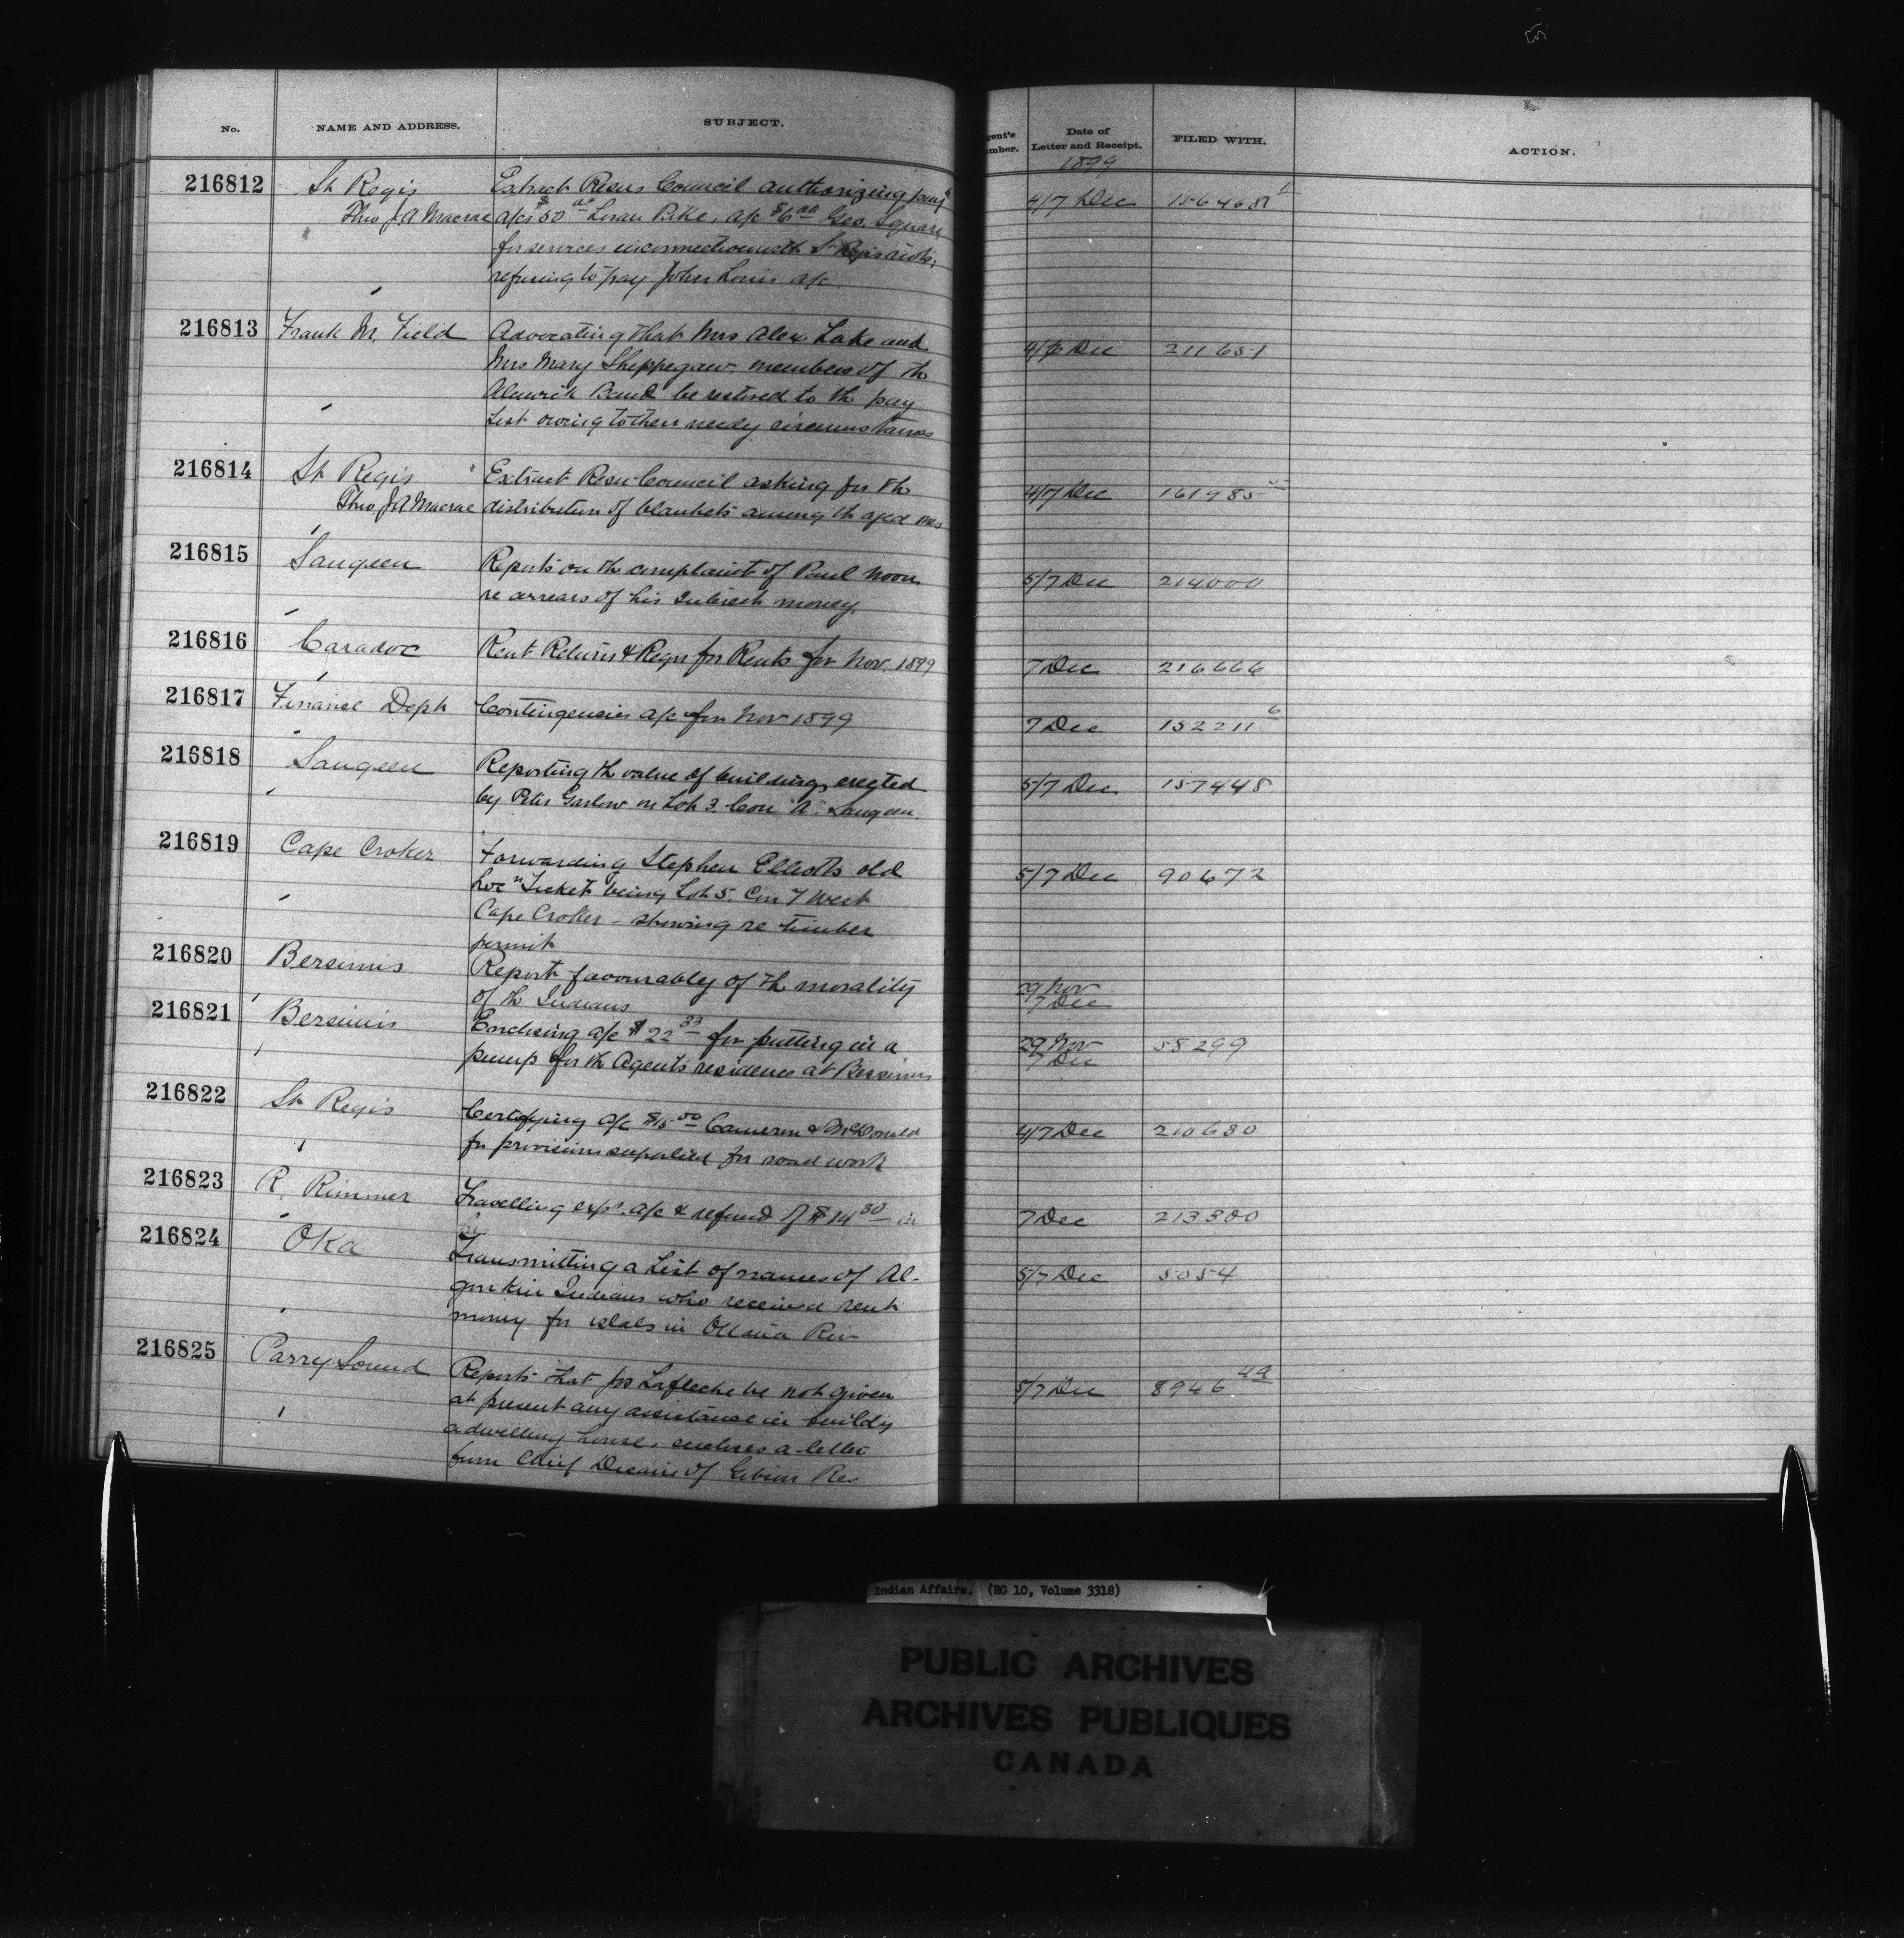 No. NAME AND ADDRESS. SUBJECT. gent's mber. Date of Letter and Receipt. FILED WITH. ACTION.
1899
216812 St Regis Extract Resns Council authorizing pay
Thro J A Macrae a/cs $50 00 Loran Pike, a/c $6 00 Geo. Square 4/7 Dec 156468
for services in connection with St Regis riots,
refusing to pay John Louis a/c
216813 Frank M. Field Advocating that Mrs Alex Lake and 4/6 Dec 211651
Mrs Mary Sheppegaw members of th
Alnwick Band be restored to th pay
List owing to their needy circumstances
216814 St Regis Extract Resn Council asking for th 4/7 Dec 161985
Thro J A Macrae distribution of blankets among th aged
216815 Saugeen Reports on th complaint of Paul Noon 5/7 Dec 214000
re arrears of his Interest money
216816 Caradoc Rent Returns & Reqn for Rents for Nov. 1899 7 Dec 216666
216817 Finance Dept Contingencies a/c for Nov 1899 7 Dec 152211 6
216818 Saugeen Reporting th value of buildings erected 5/7 Dec 157448
by Peter Garlow on Lot 3. Con "A". Saugeen
216819 Cape Croker Forwarding Stephen Elliotts old 5/7 Dec 90672
Locn Ticket being Lot 5. Con 7 West
Cape Croker - showing re timber
permit
216820 Bersimis Report favourably of th morality 29 Nov
of th Indians 7 Dec
216821 Bersimis Enclosing a/c $22 33 for putting in a 29 Nov 58299
pump for th Agents residence at Bersimis 7 Dec
216822 St Regis Certifying a/c $15 00 Cameron & McDonald 4/7 Dec 210630
for provisions supplied for road work
216823 R. Rimmer Travelling exps. a/c & refund of $14 30 7 Dec 213300
216824 Oka Transmitting a List of names of Al- 5/7 Dec 5054
gonkin Indians who received rent
money for islds in Ottawa Riv
216825 Parry Sound Reports that Jos Lafleche be not given 5/7 Dec 8946 49
at present any assistance in buildg
a dwelling house, encloses a letter
from Chief Decaire of Gibson Res
Indian Affairs. (RG 10, Volume 3318)
PUBLIC ARCHIVES
ARCHIVES PUBLIQUES
CANADA